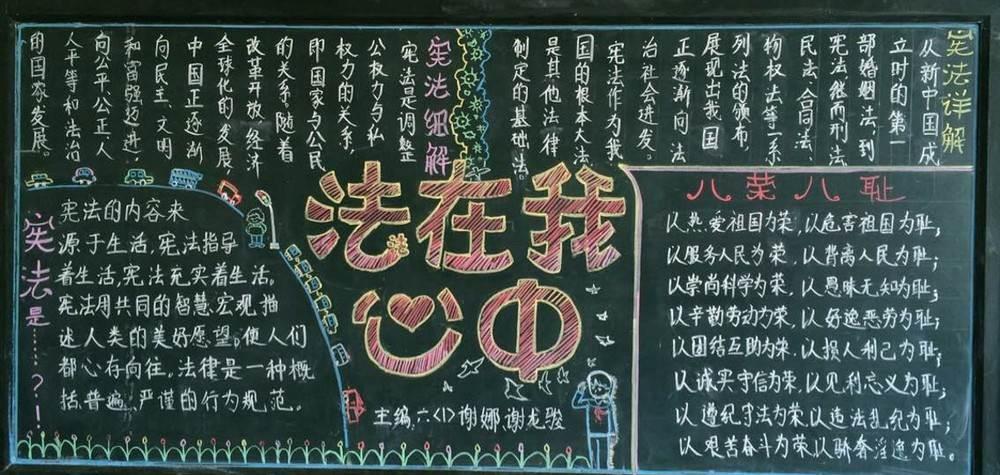 宪法详解
从新中国成
立时的第一
部婚姻法到
宪法继而刑法
民法、合同法、
物权法等一系
列法的颁布,
展现出我国
正逐渐向法
治社会进发。
宪法作为我
国的根本大法
是其他法律
制定的基础法。
宪法细解
宪法是调整
公权力与私
权力的关系,
即国家与公民
的关系。随着
改革开放、经济
全球化的发展,
中国正逐渐
向民主、文明
和富强迈进,
向公平公正人
人平等和法治
的国家发展。
法在我
心中
主编:六<1>谢娜 谢龙骏
宪法是……?!
宪法的内容来
源于生活,宪法指导
着生活,宪法充实着生活。
宪法用共同的智慧,宏观描
述人类的美好愿望。使人们
都心存向往。法律是一种概
括、普遍、严谨的行为规范。
八荣八耻
以热爱祖国为荣,以危害祖国为耻;
以服务人民为荣,以背离人民为耻;
以崇尚科学为荣,以愚昧无知为耻;
以辛勤劳动为荣,以好逸恶劳为耻;
以团结互助为荣,以损人利己为耻;
以诚实守信为荣,以见利忘义为耻;
以遵纪守法为荣,以违法乱纪为耻;
以艰苦奋斗为荣,以骄奢淫逸为耻。